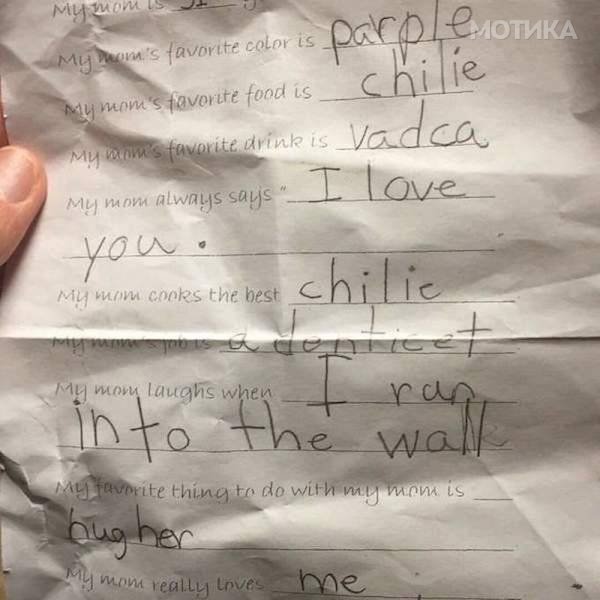 My mom is
My mom's favorite color is parple
МОТИКА
My mom's favorite food is chilie
My mom's favorite drink is vadca
My mom always says " I love
you.
My mom cooks the best chilie
My mom's job is a denticet
My mom laughs when I ran
into the wall
My favorite thing to do with my mom is
hug her
My mom really loves me .